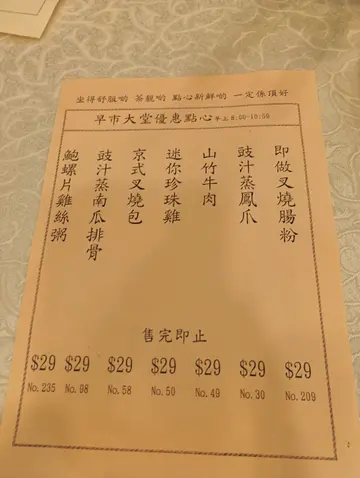 坐得舒服啲 茶靚啲 點心新鮮啲 一定係頂好
早市大堂優惠點心早上8:00-10:50
即做叉燒腸粉
豉汁蒸鳳爪
山竹牛肉
迷你珍珠雞
京式叉燒包
豉汁蒸南瓜排骨
鮑螺片雞絲粥
售完即止
$29 $29 $29 $29 $29 $29 $29
No.235 No.98 No.58 No.50 No.49 No.30 No.209